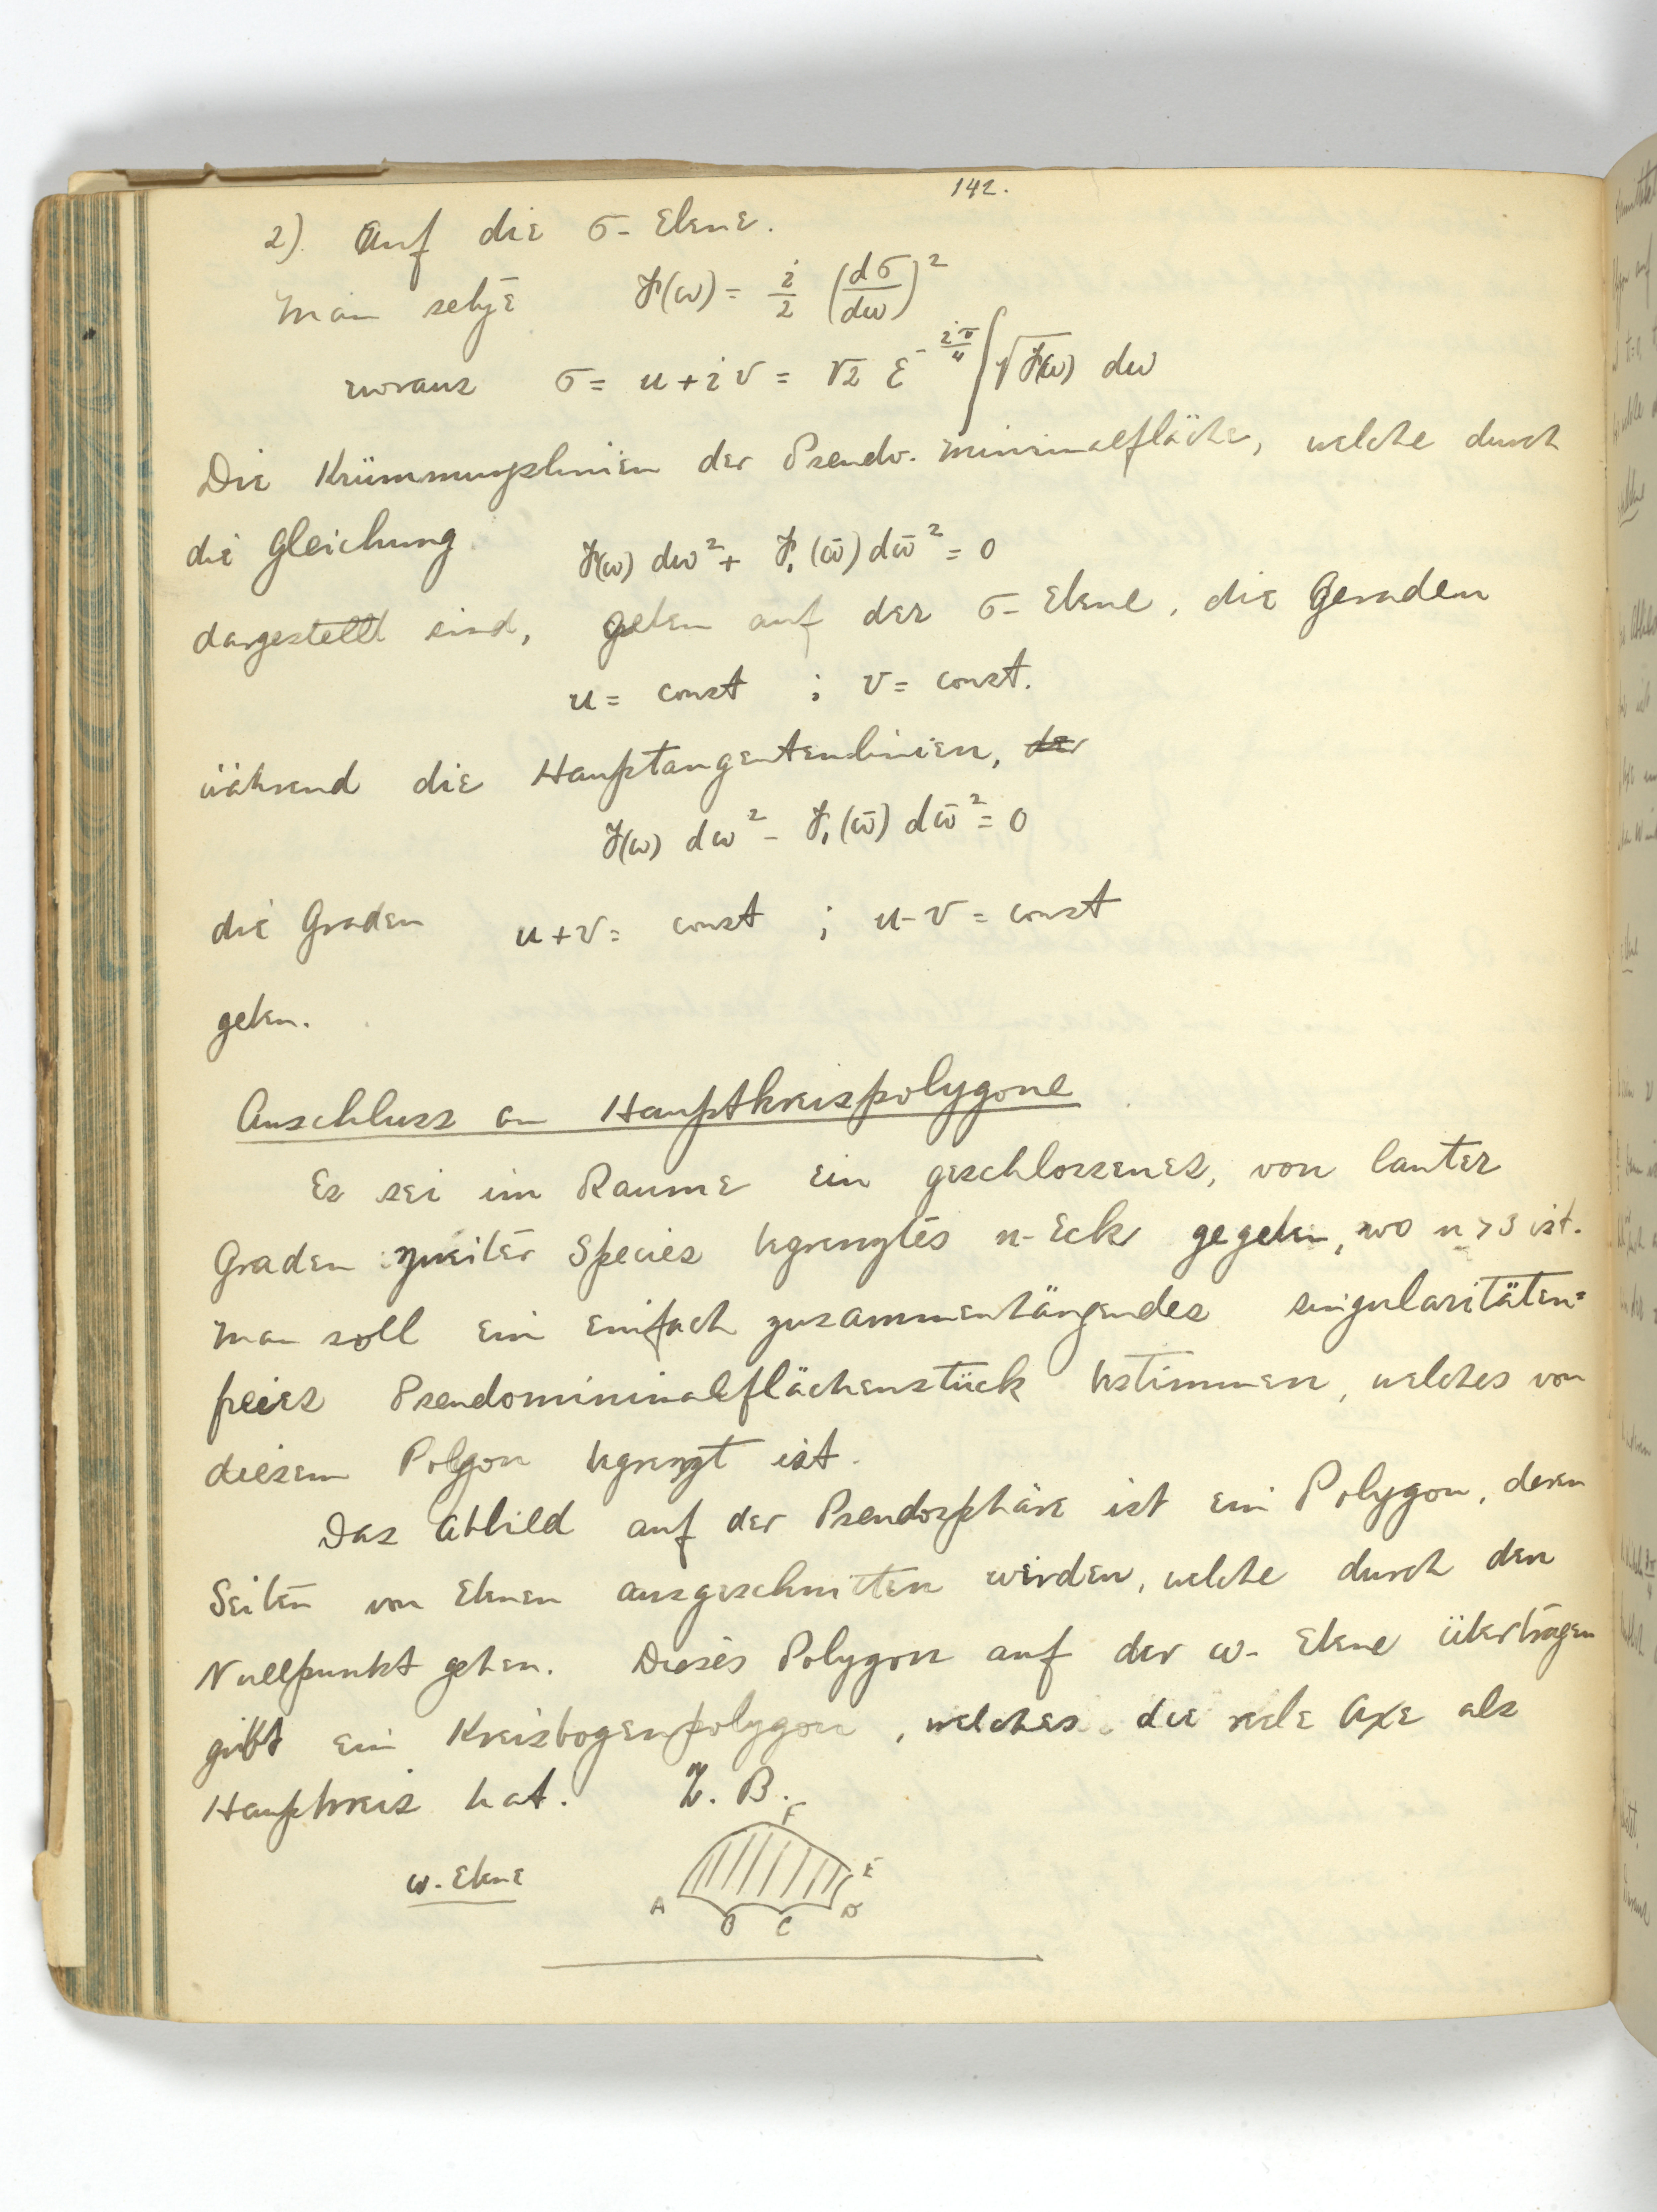 142.
2) Auf die σ- Ebene.
Man setze F(ω) = i/2 (dσ/dω)²
woraus σ = u + i v = √2 e^(-iπ/4) ∫ √F(ω) dω
Die Krümmungslinien der Pseudo-minimalfläche, welche durch
die Gleichung
F(ω) dω² + F₁(ω̄) dω̄² = 0
dargestellt sind, geben auf der σ- Ebene, die Geraden
u = const ; v = const.
während die Haupttangentenlinien, der
F(ω) dω² - F₁(ω̄) dω̄² = 0
die Graden u + v = const ; u - v = const
geben.
Anschluss an Hauptkreispolygone
Es sei im Raume ein geschlossenes, von lauter
Graden zweiter Species begrenztes n-Eck gegeben, wo n > 3 ist.
Man soll ein einfach zusammenhängendes singularitäten=
freies Pseudominimalflächenstück bestimmen, welches von
diesem Polgon begrenzt ist.
Das Abbild auf der Pseudosphäre ist ein Polygon, deren
Seiten von Ebenen ausgeschnitten werden, welche durch den
Nullpunkt gehen. Dieses Polygon auf der ω- Ebene übertragen
gibt ein Kreisbogenpolygon, welches die reele Axe als
Hauptkreis hat. Z. B.
F
ω- Ebene
E
A
B
C
D